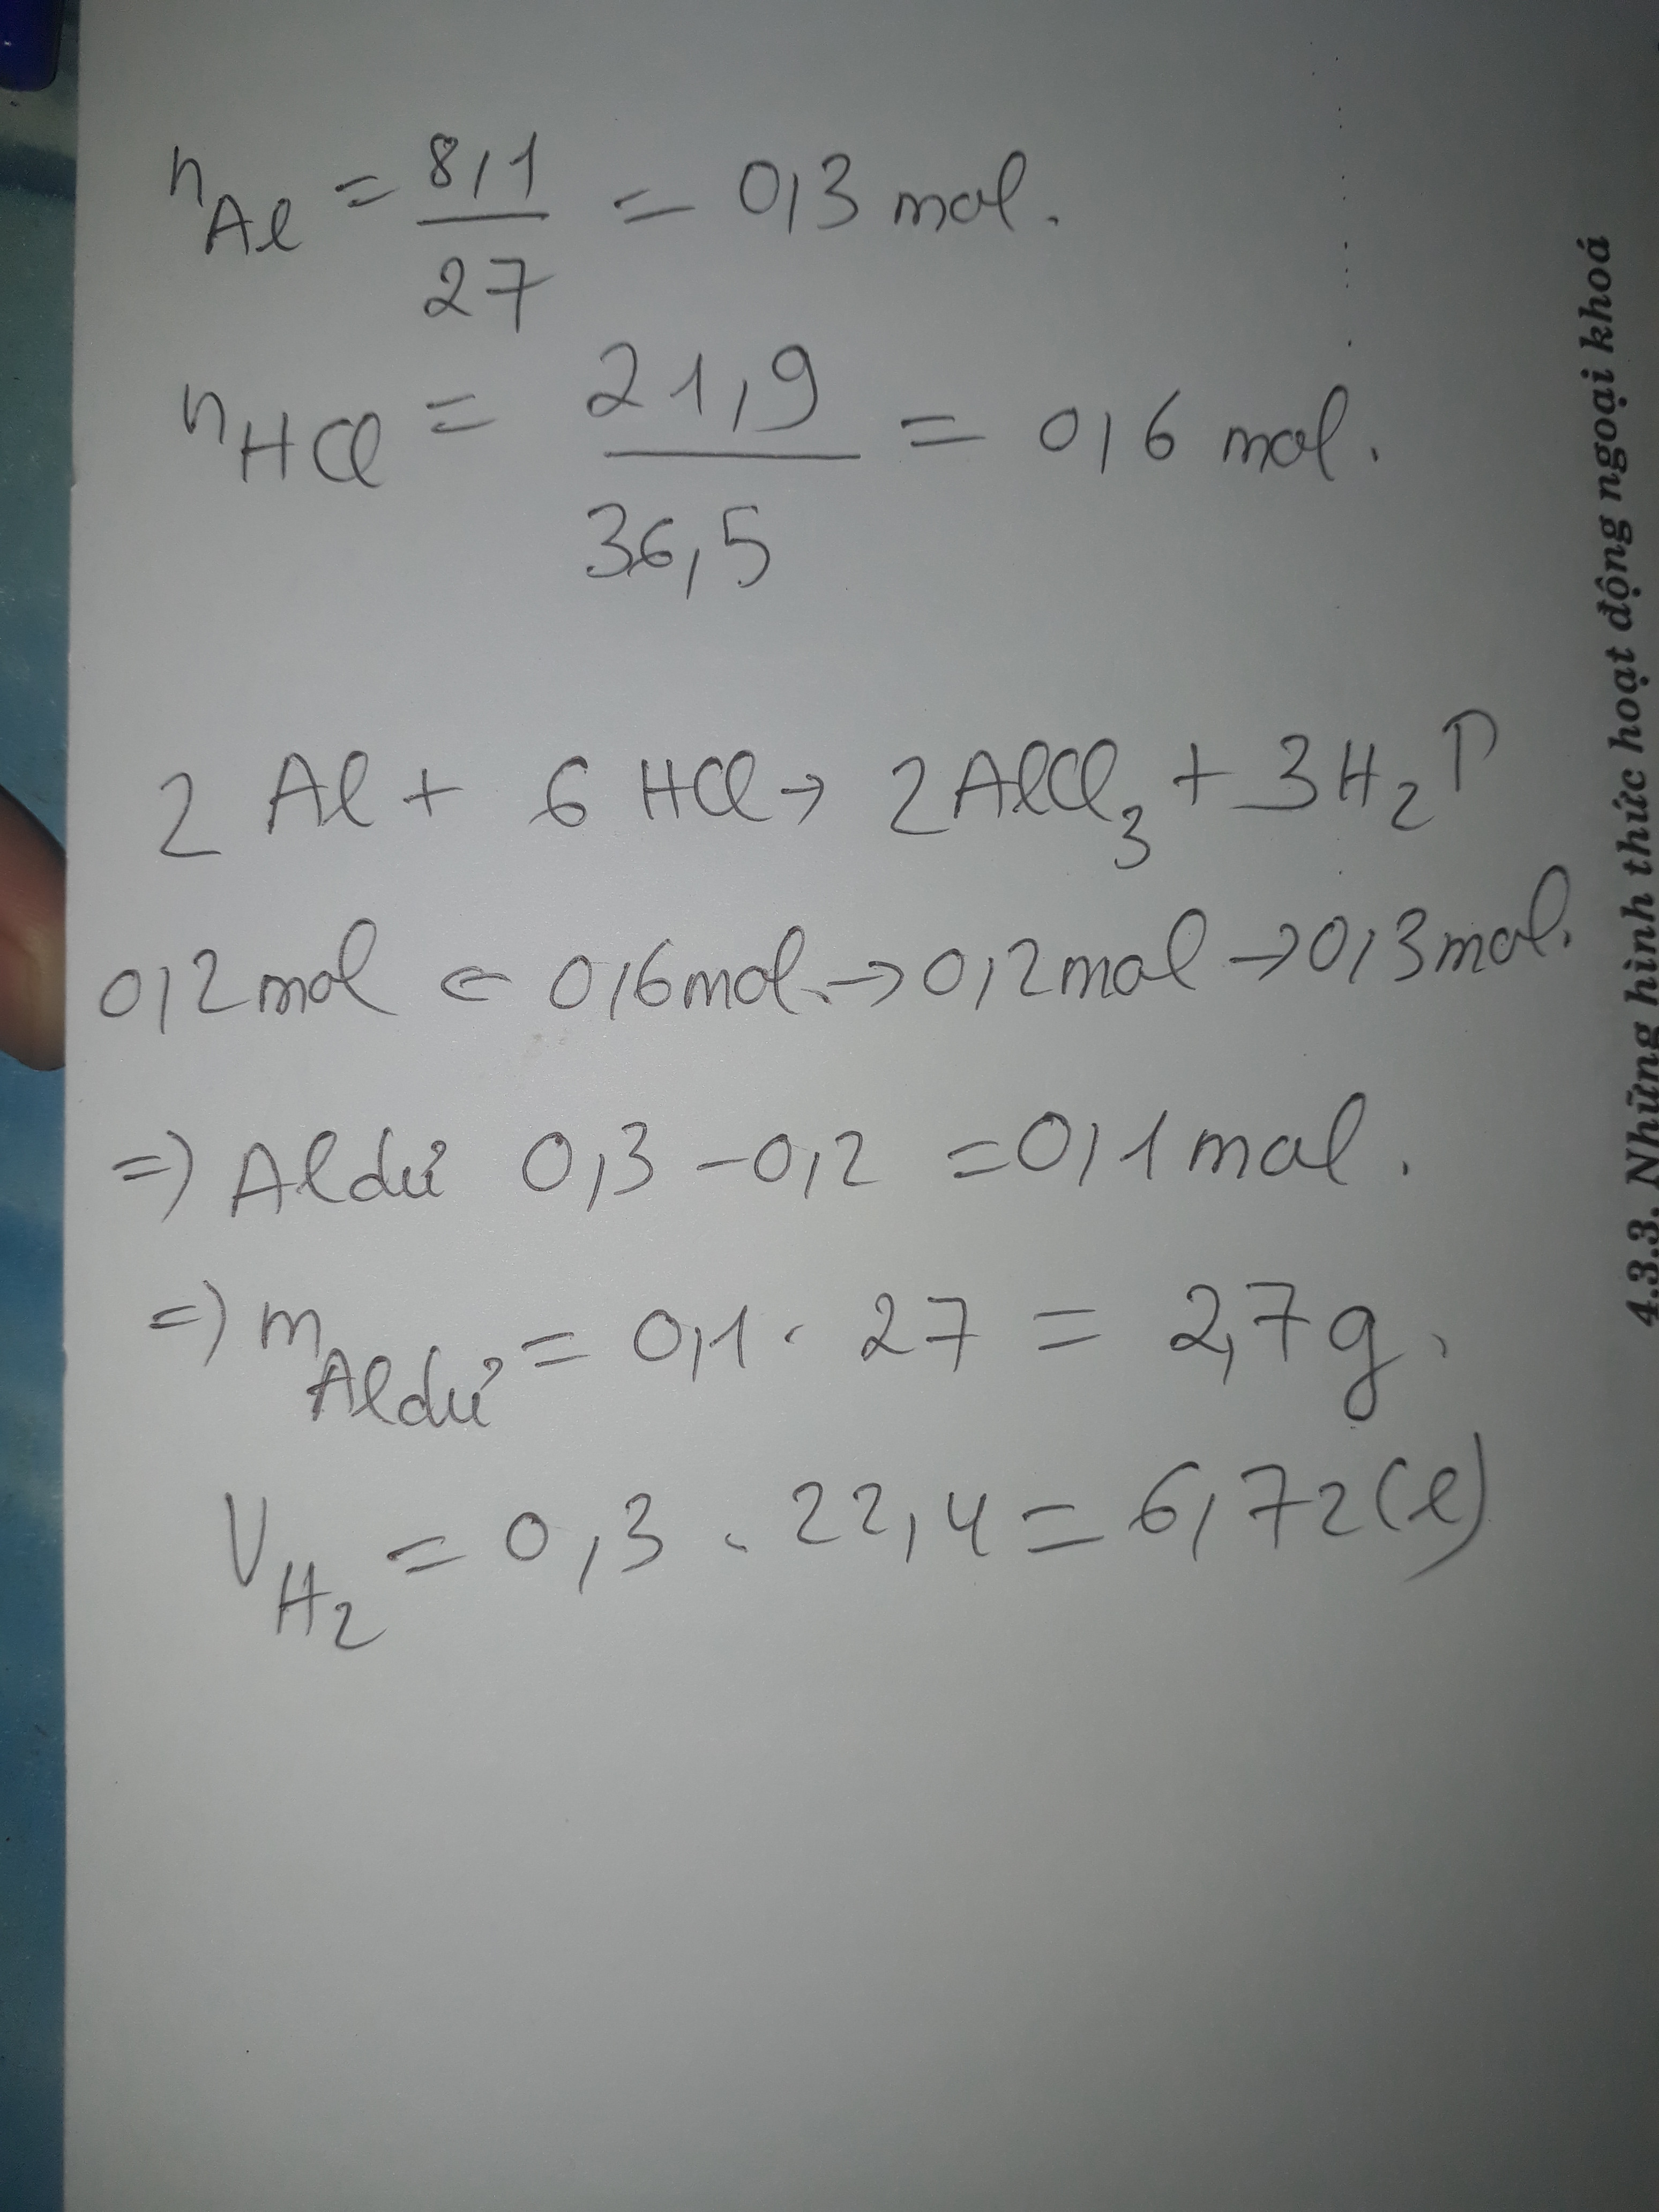 nAl = 8,1/27 = 0,3 mol.
nHCl = 21,9/36,5 = 0,6 mol.
2 Al + 6 HCl → 2AlCl3 + 3H2↑
0,2mol ← 0,6mol. → 0,2mol → 0,3mol.
=> Al dư 0,3 - 0,2 = 0,1 mol.
=> mAl dư = 0,1 . 27 = 2,7g.
VH2 = 0,3 . 22,4 = 6,72(l)
4.3.3. Những hình thức hoạt động ngoại khoá